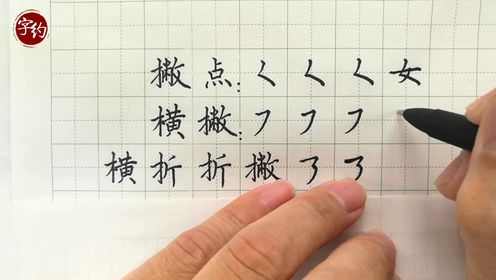 字约
撇点:ㄑㄑㄑ女
横撇:フフフ
横折折撇㇋㇋